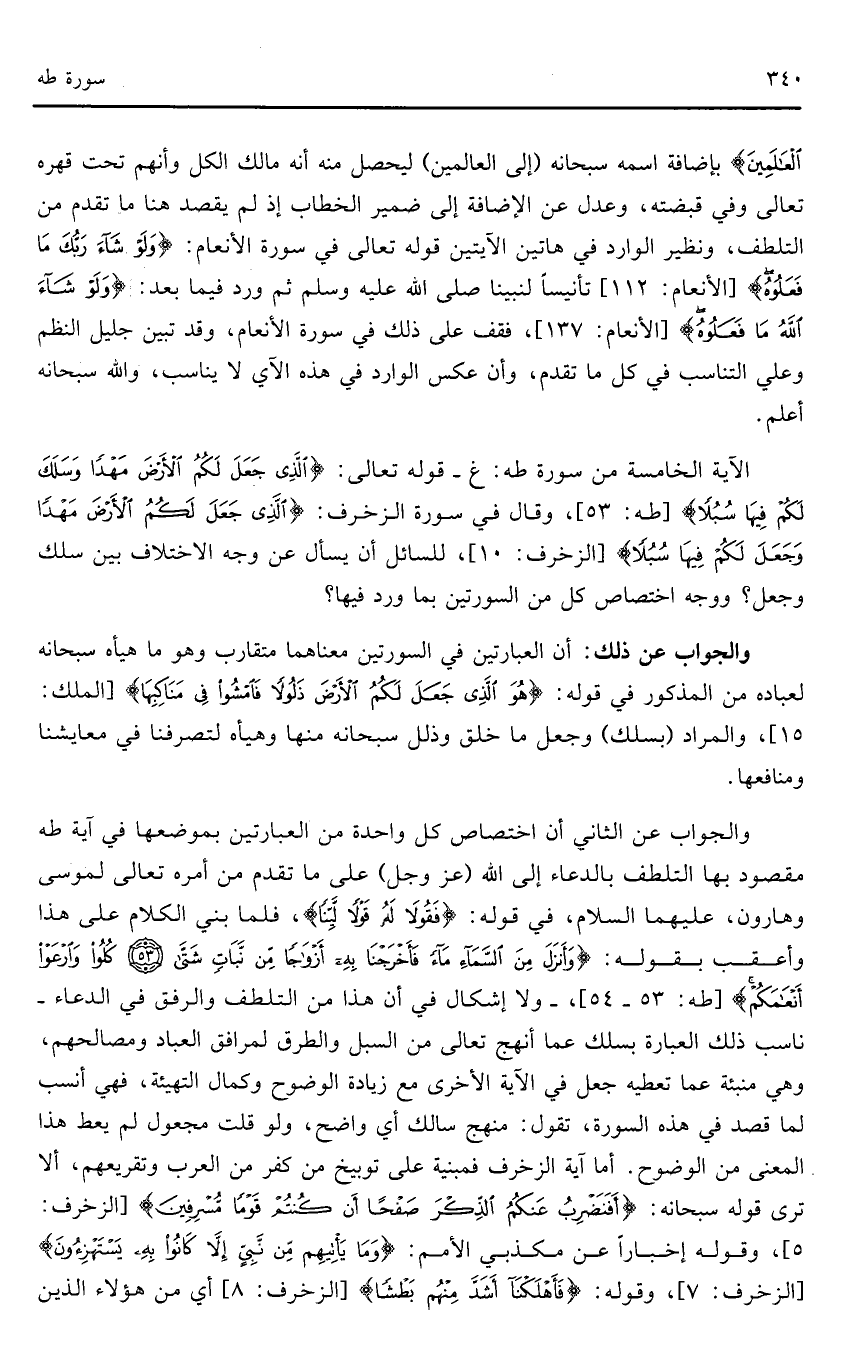 ٣٤٠ سورة طه
ٱلْعَٰلَمِينَ﴾ بإضافة اسمه سبحانه (إلى العالمين) ليحصل منه أنه مالك الكل وأنهم تحت قهره
تعالى وفي قبضته، وعدل عن الإضافة إلى ضمير الخطاب إذ لم يقصد هنا ما تقدم من
التلطف، ونظير الوارد في هاتين الآيتين قوله تعالى في سورة الأنعام: ﴿وَلَوْ شَآءَ رَبُّكَ مَا
فَعَلُوهُۖ﴾ [الأنعام: ١١٢] تأنيساً لنبينا صلى الله عليه وسلم ثم ورد فيما بعد: ﴿وَلَوْ شَآءَ
ٱللَّهُ مَا فَعَلُوهُۖ﴾ [الأنعام: ١٣٧]، فقف على ذلك في سورة الأنعام، وقد تبين جليل النظم
وعلي التناسب في كل ما تقدم، وأن عكس الوارد في هذه الآي لا يناسب، والله سبحانه
أعلم.
الآية الخامسة من سورة طه: غ ـ قوله تعالى: ﴿ٱلَّذِى جَعَلَ لَكُمُ ٱلْأَرْضَ مَهْدًا وَسَلَكَ
لَكُمْ فِيهَا سُبُلًا﴾ [طه: ٥٣]، وقال في سورة الزخرف: ﴿ٱلَّذِى جَعَلَ لَكُمُ ٱلْأَرْضَ مَهْدًا
وَجَعَلَ لَكُمْ فِيهَا سُبُلًا﴾ [الزخرف: ١٠]، للسائل أن يسأل عن وجه الاختلاف بين سلك
وجعل؟ ووجه اختصاص كل من السورتين بما ورد فيها؟
والجواب عن ذلك: أن العبارتين في السورتين معناهما متقارب وهو ما هيأه سبحانه
لعباده من المذكور في قوله: ﴿هُوَ ٱلَّذِى جَعَلَ لَكُمُ ٱلْأَرْضَ ذَلُولًا فَٱمْشُوا۟ فِى مَنَاكِبِهَا﴾ [الملك:
١٥]، والمراد (بسلك) وجعل ما خلق وذلل سبحانه منها وهيأه لتصرفنا في معايشنا
ومنافعها.
والجواب عن الثاني أن اختصاص كل واحدة من العبارتين بموضعها في آية طه
مقصود بها التلطف بالدعاء إلى الله (عز وجل) على ما تقدم من أمره تعالى لموسى
وهارون، عليهما السلام، في قوله: ﴿فَقُولَا لَهُۥ قَوْلًا لَّيِّنًا﴾، فلما بني الكلام على هذا
وأعقب بقوله: ﴿وَأَنزَلَ مِنَ ٱلسَّمَآءِ مَآءً فَأَخْرَجْنَا بِهِۦٓ أَزْوَٰجًا مِّن نَّبَاتٍ شَتَّىٰ ۝٥٣ كُلُوا۟ وَٱرْعَوْا۟
أَنْعَٰمَكُمْۚ﴾ [طه: ٥٣ ـ ٥٤]، ـ ولا إشكال في أن هذا من التلطف والرفق في الدعاء ـ
ناسب ذلك العبارة بسلك عما أنهج تعالى من السبل والطرق لمرافق العباد ومصالحهم،
وهي منبئة عما تعطيه جعل في الآية الأخرى مع زيادة الوضوح وكمال التهيئة، فهي أنسب
لما قصد في هذه السورة، تقول: منهج سالك أي واضح، ولو قلت مجعول لم يعط هذا
المعنى من الوضوح. أما آية الزخرف فمبنية على توبيخ من كفر من العرب وتقريعهم، ألا
ترى قوله سبحانه: ﴿أَفَنَضْرِبُ عَنكُمُ ٱلذِّكْرَ صَفْحًا أَن كُنتُمْ قَوْمًا مُّسْرِفِينَ﴾ [الزخرف:
٥]، وقوله إخباراً عن مكذبي الأمم: ﴿وَمَا يَأْتِيهِم مِّن نَّبِىٍّ إِلَّا كَانُوا۟ بِهِۦ يَسْتَهْزِءُونَ﴾
[الزخرف: ٧]، وقوله: ﴿فَأَهْلَكْنَآ أَشَدَّ مِنْهُم بَطْشًا﴾ [الزخرف: ٨] أي من هؤلاء الذين